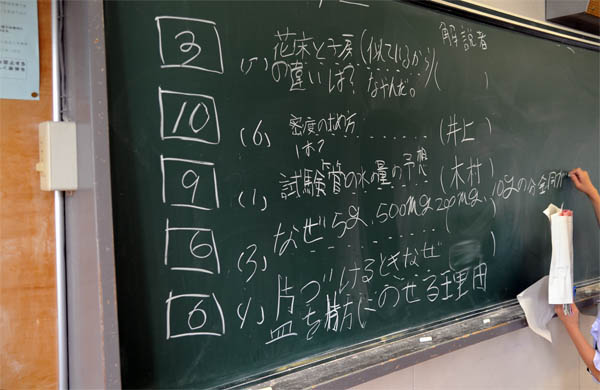 解説者
3 (7) 花床と子房(似ているから)
の違いは? なやんだ。 ( )
10 (6) 密度の求め方 (井上)
は?
9 (1) 試験管の水の量の予想 (木村)
6 (3) なぜ5g、500mg、200mg、10gの分銅 ( )
6 (4) 片づけるときなぜ ( )
皿を片方にのせる理由